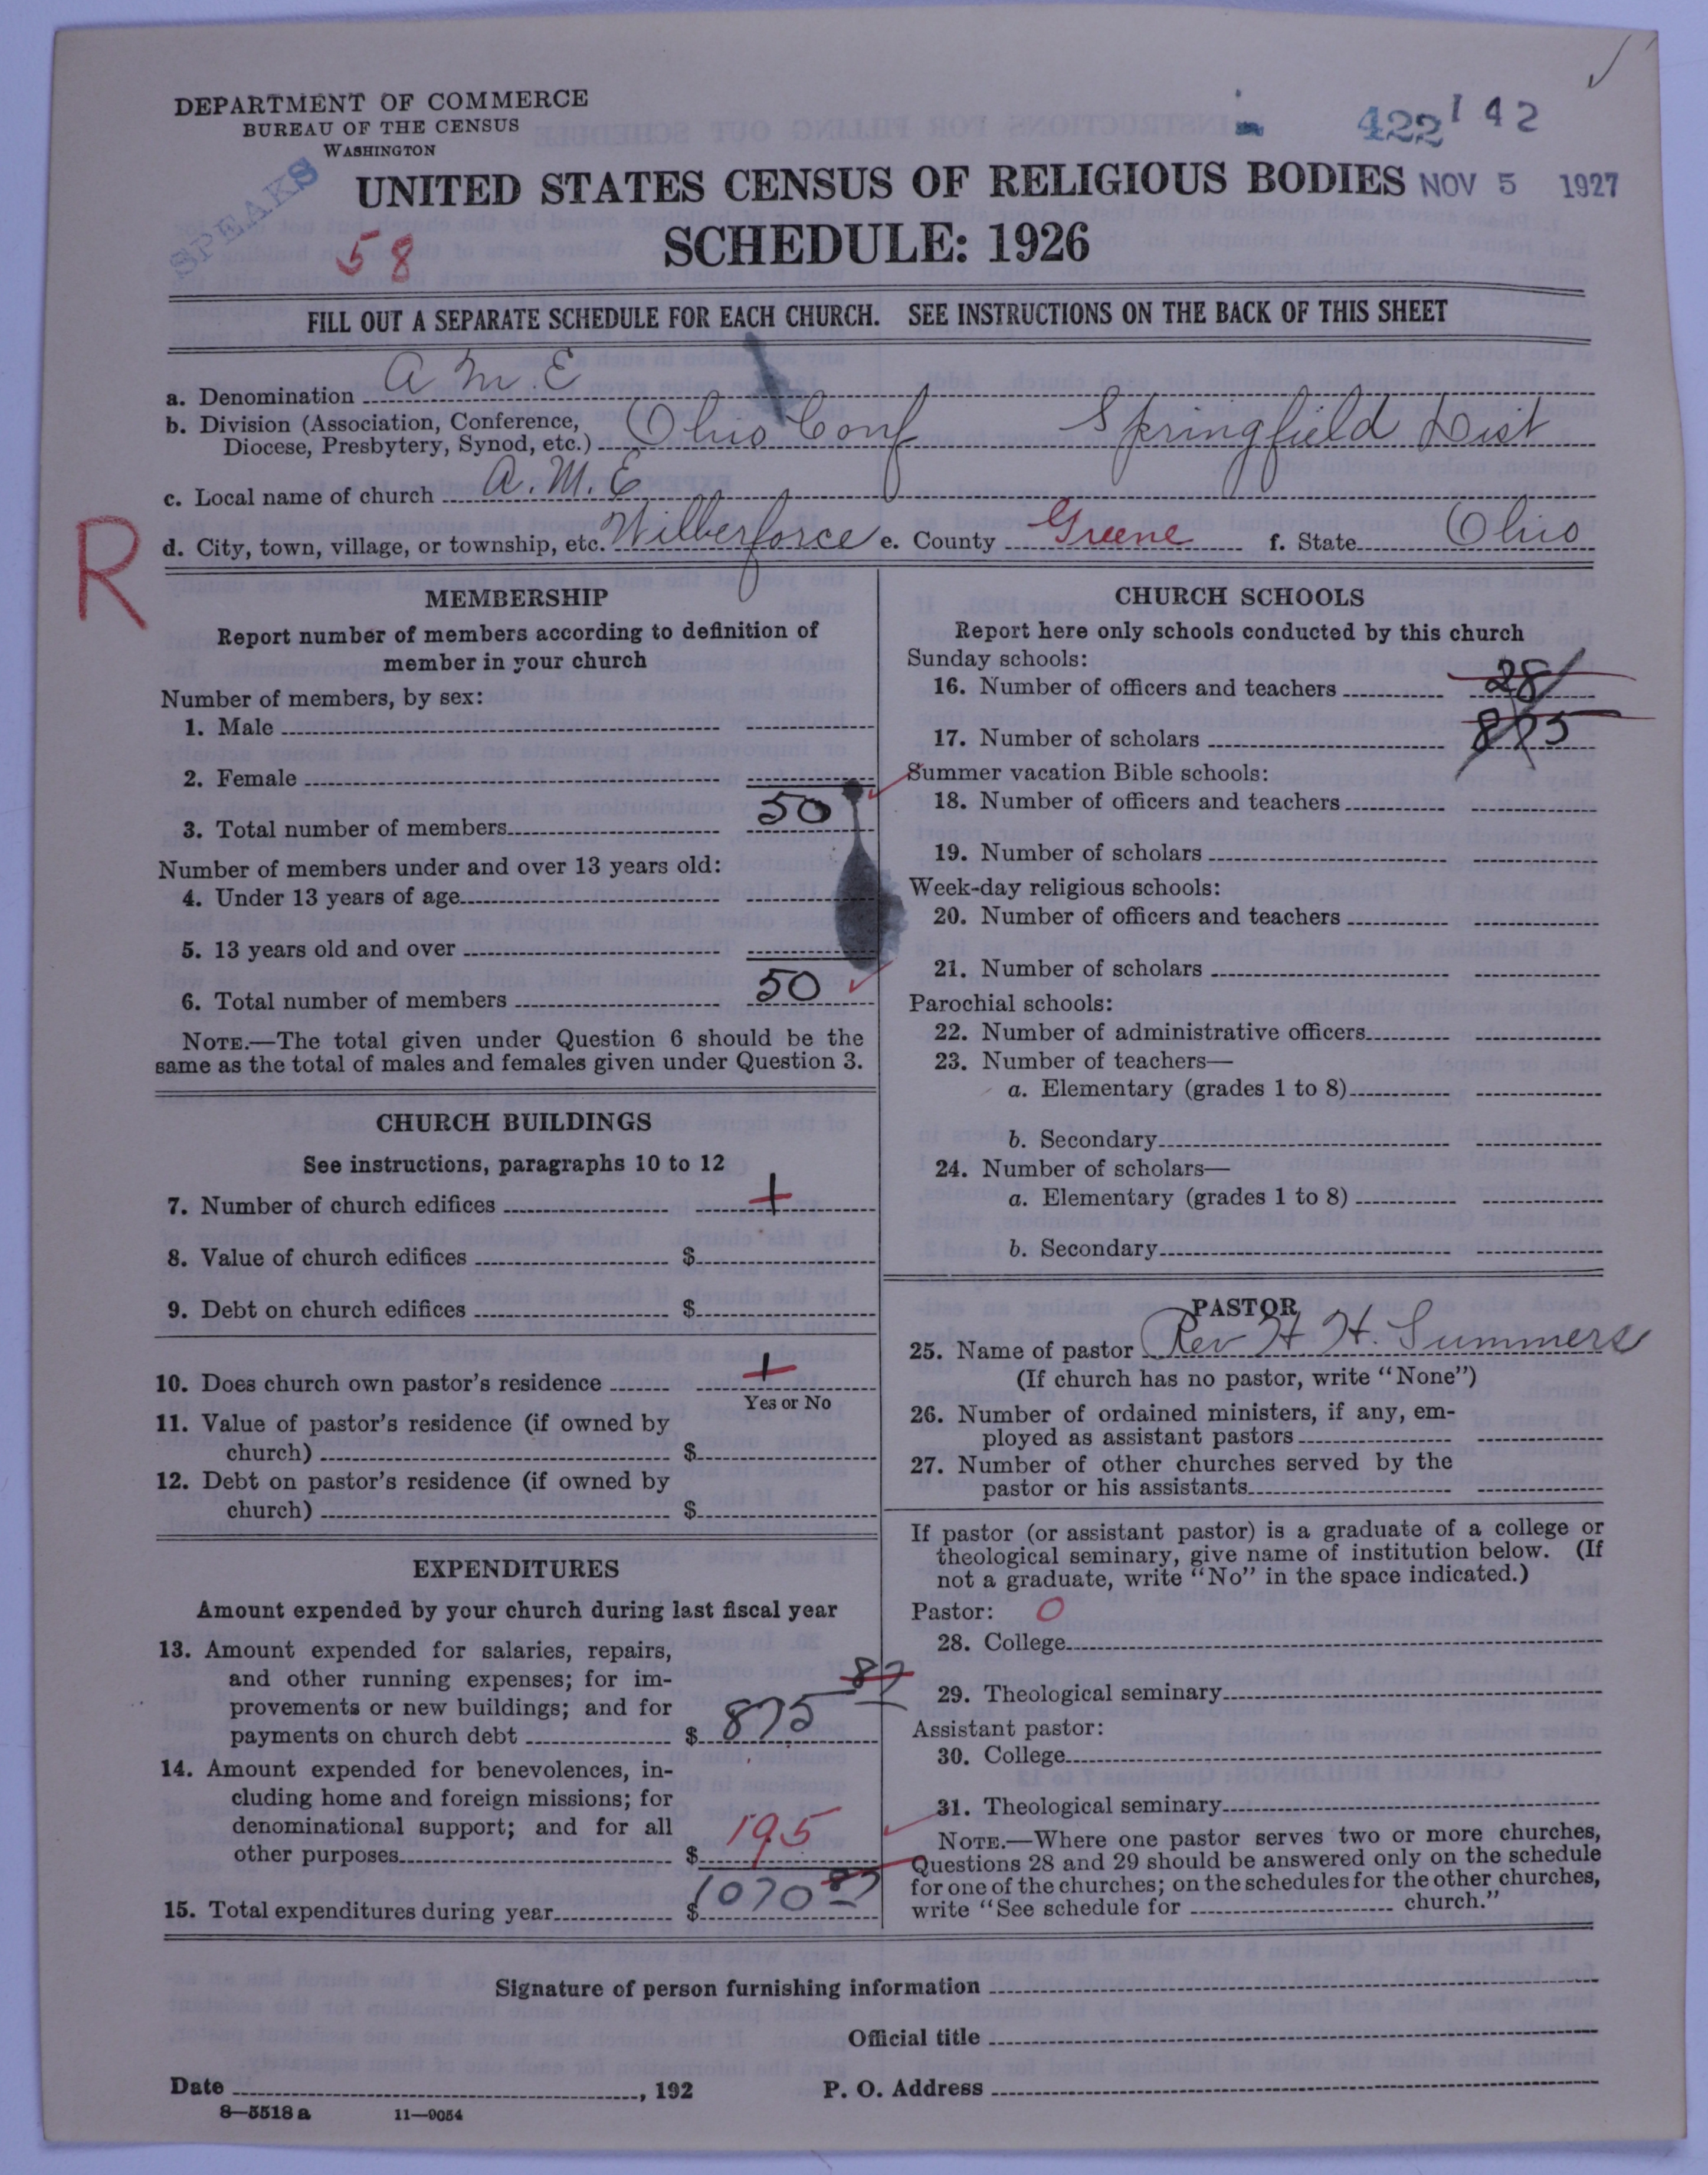 DEPARTMENT OF COMMERCE
BUREAU OF THE CENSUS
WASHINGTON
SPEAKS
422 142
UNITED STATES CENSUS OF RELIGIOUS BODIES NOV 5 1927
58
SCHEDULE: 1926
FILL OUT A SEPARATE SCHEDULE FOR EACH CHURCH. SEE INSTRUCTIONS ON THE BACK OF THIS SHEET
a. Denomination A. M. E
b. Division (Association, Conference,
Diocese, Presbytery, Synod, etc.) Ohio Conf Springfield Dist
c. Local name of church A. M. E
R
d. City, town, village, or township, etc. Wilberforce e. County Greene f. State Ohio
MEMBERSHIP
Report number of members according to definition of
member in your church
Number of members, by sex:
1. Male
2. Female
3. Total number of members 50
Number of members under and over 13 years old:
4. Under 13 years of age
5. 13 years old and over
6. Total number of members 50
NOTE.—The total given under Question 6 should be the
same as the total of males and females given under Question 3.
CHURCH BUILDINGS
See instructions, paragraphs 10 to 12
7. Number of church edifices 1
8. Value of church edifices $
9. Debt on church edifices $
10. Does church own pastor's residence 1
Yes or No
11. Value of pastor's residence (if owned by
church) $
12. Debt on pastor's residence (if owned by
church) $
EXPENDITURES
Amount expended by your church during last fiscal year
13. Amount expended for salaries, repairs,
and other running expenses; for im-
provements or new buildings; and for
payments on church debt $ 875 87
14. Amount expended for benevolences, in-
cluding home and foreign missions; for
denominational support; and for all
other purposes $ 195
15. Total expenditures during year $ 1070 87
CHURCH SCHOOLS
Report here only schools conducted by this church
Sunday schools:
16. Number of officers and teachers 28
17. Number of scholars 875
Summer vacation Bible schools:
18. Number of officers and teachers
19. Number of scholars
Week-day religious schools:
20. Number of officers and teachers
21. Number of scholars
Parochial schools:
22. Number of administrative officers
23. Number of teachers—
a. Elementary (grades 1 to 8)
b. Secondary
24. Number of scholars—
a. Elementary (grades 1 to 8)
b. Secondary
PASTOR
25. Name of pastor Rev H. H. Summers
(If church has no pastor, write "None")
26. Number of ordained ministers, if any, em-
ployed as assistant pastors
27. Number of other churches served by the
pastor or his assistants
If pastor (or assistant pastor) is a graduate of a college or
theological seminary, give name of institution below. (If
not a graduate, write "No" in the space indicated.)
Pastor: O
28. College
29. Theological seminary
Assistant pastor:
30. College
31. Theological seminary
NOTE.—Where one pastor serves two or more churches,
Questions 28 and 29 should be answered only on the schedule
for one of the churches; on the schedules for the other churches,
write "See schedule for church."
Signature of person furnishing information
Official title
Date , 192 P. O. Address
8—5518 a 11—9054